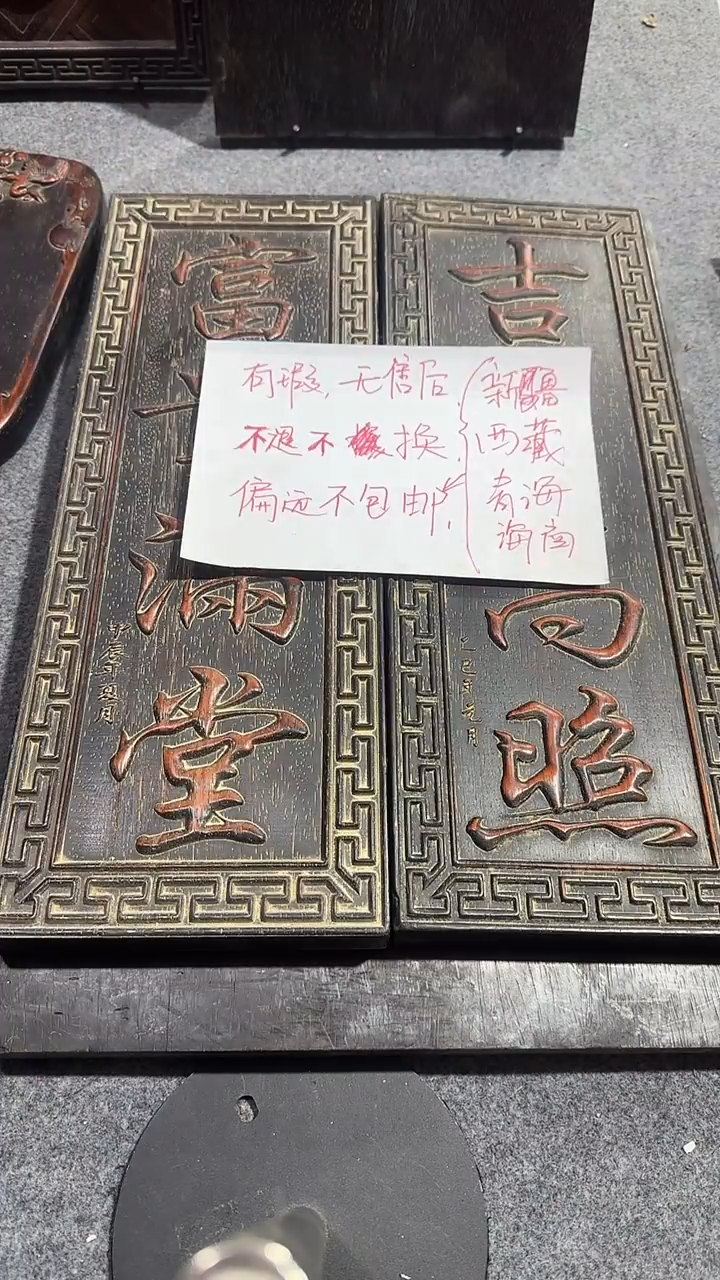 有瑕,无售后,
不退不换
偏远不包邮!
新疆
西藏
青海
海南
吉
照
富
滿
堂
甲辰年夏月